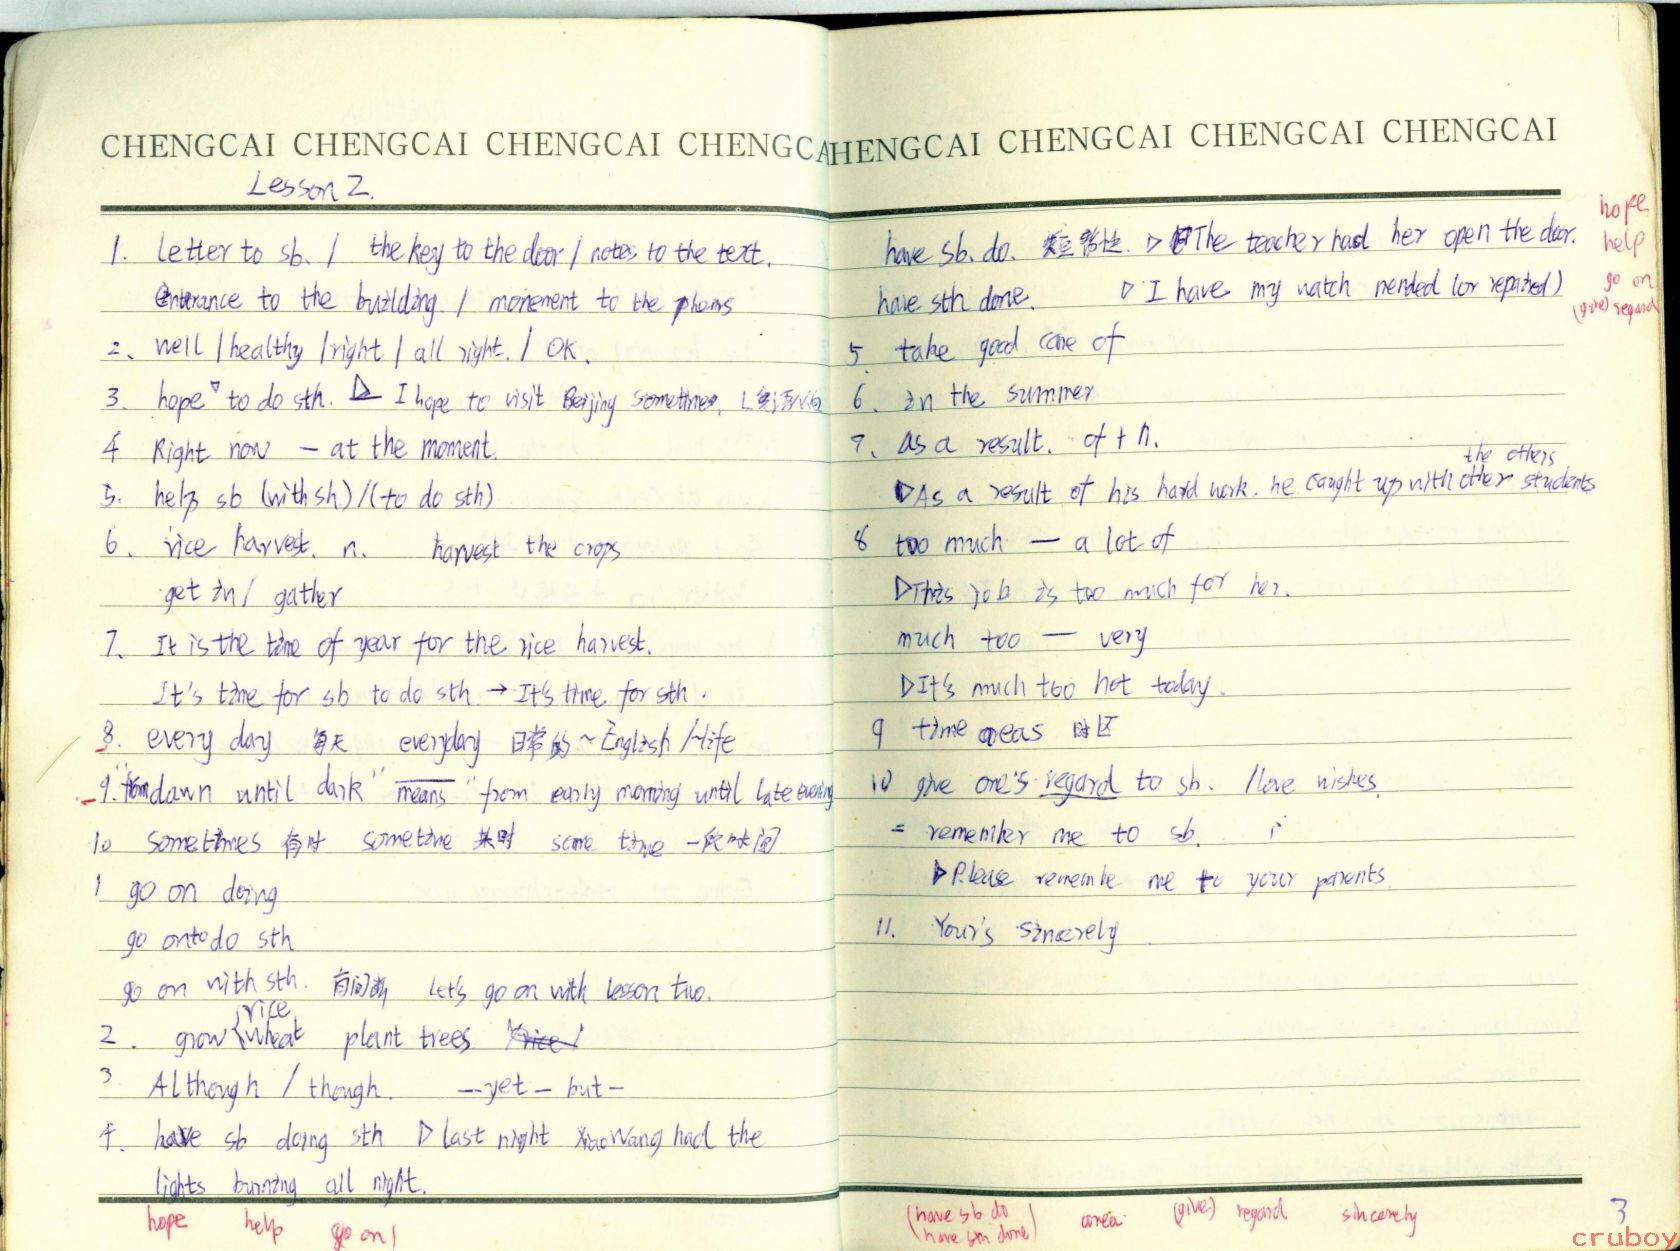 CHENGCAI CHENGCAI CHENGCAI CHENGCA
Lesson 2.
1. Letter to sb. / the key to the door / notes to the text.
entrance to the building / monement to the
2、 well / healthy / right / all right. / OK.
3. hope to do sth. ▷ I hope to visit Beijing sometimes.
4 Right now — at the moment.
5. help sb (with sh) / (to do sth)
6. rice harvest. n. harvest the crops
get in / gather
7. It is the time of year for the rice harvest.
It's time for sb to do sth → It's time for sth.
8. every day 每天 everyday 日常的 ~English /~life
9. "from dawn until dark" means "from early morning until late evening
10 sometimes 有时 sometime 某时 some time 一段时间
1 go on doing
go on to do sth
go on with sth. 有间断 Let's go on with lesson two.
rice
2. grow { wheat plant trees
3 Although / though. — yet — but —
4. have sb doing sth ▷ last night XiaoWang had the
lights burning all night.
hope help go on
HENGCAI CHENGCAI CHENGCAI CHENGCAI
have sb. do. ▷ The teacher had her open the door.
have sth done. ▷ I have my watch mended (or repaired)
5 take good care of
6. in the summer
7. as a result. of + n.
the others
▷ As a result of his hard work. he caught up with other students
8 too much — a lot of
▷ This job is too much for her.
much too — very
▷ It's much too hot today.
9 time areas 时区
10 give one's regard to sb. / love wishes.
= remember me to sb.
▷ Please remembe me to your parents.
11. Your's sincerely
hope
help
go on
(give) regard
(have sb do
have sth done) area (give) regard sincerely
3
cruboy